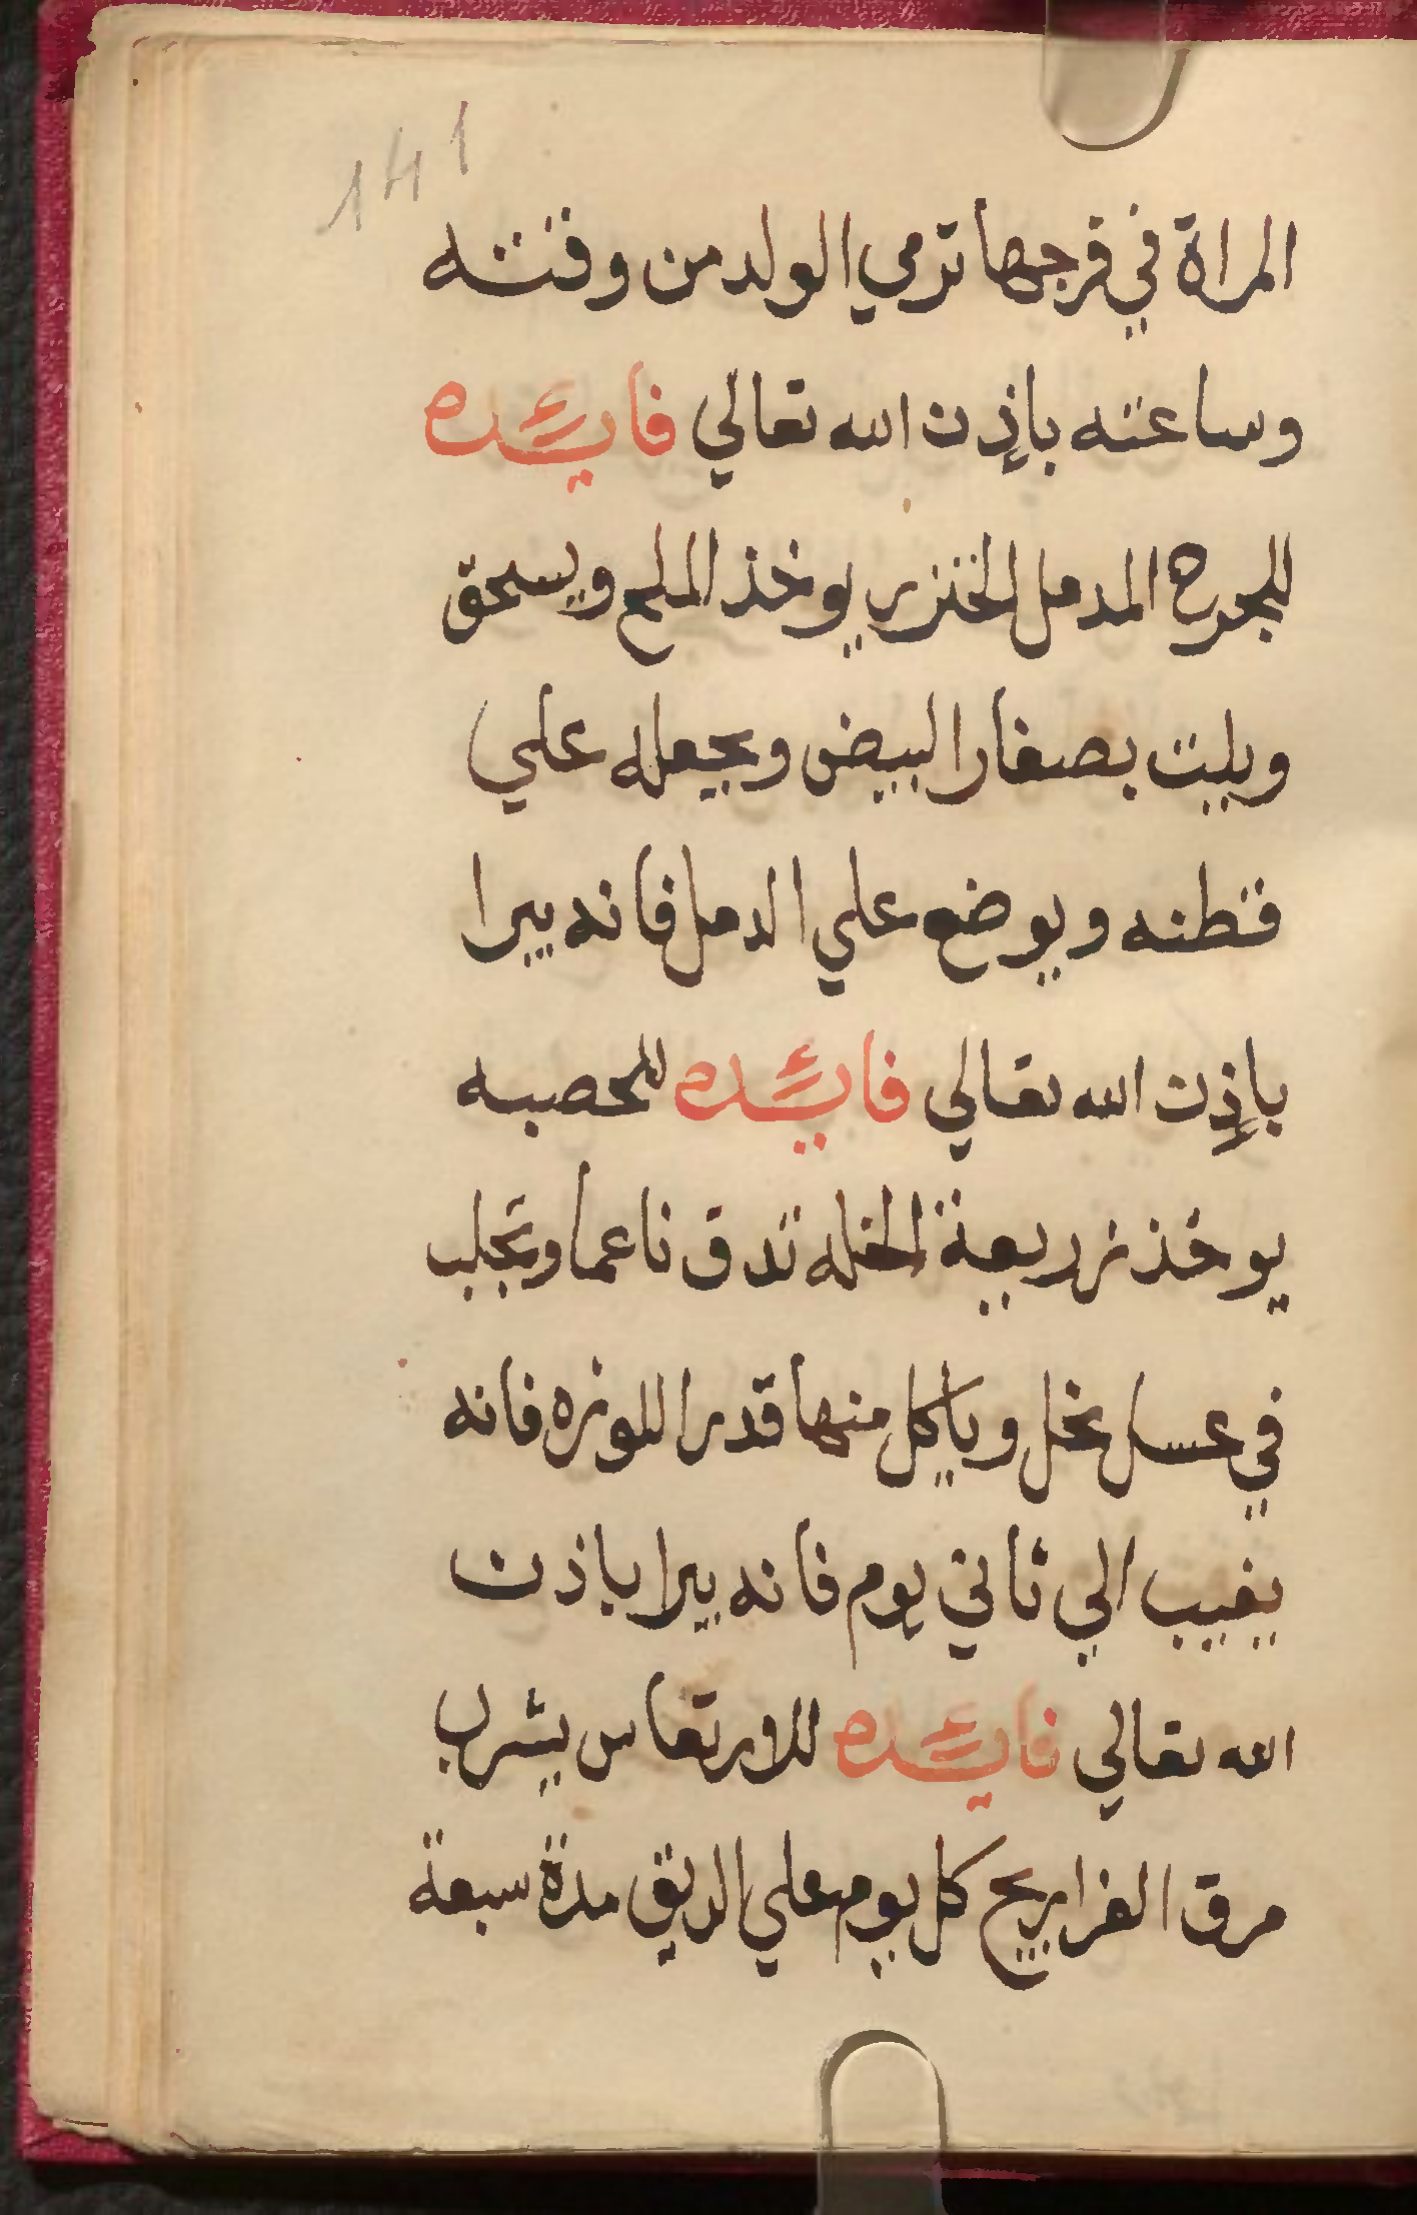 141
المراة في فرجها ترمي الولد من وقته
وساعته بإذن الله تعالي فايئده
للجرح المدمل الخنزير يوخذ الملح ويسحق
ويلت بصفار البيض ويجعله علي
قطنه ويوضع علي الدمل فانه يبرا
بإذن الله تعالي فايئده للحصبه
يوخذ زريعة الخله تدق ناعما وتجلب
في عسل نحل وياكل منها قدر اللوزه فانه
يغيب الي ثاني يوم فانه يبرا باذن
الله تعالي فايئده للارتعاس يشرب
مرق الفراريح كل يوم علي الريق مدة سبعة